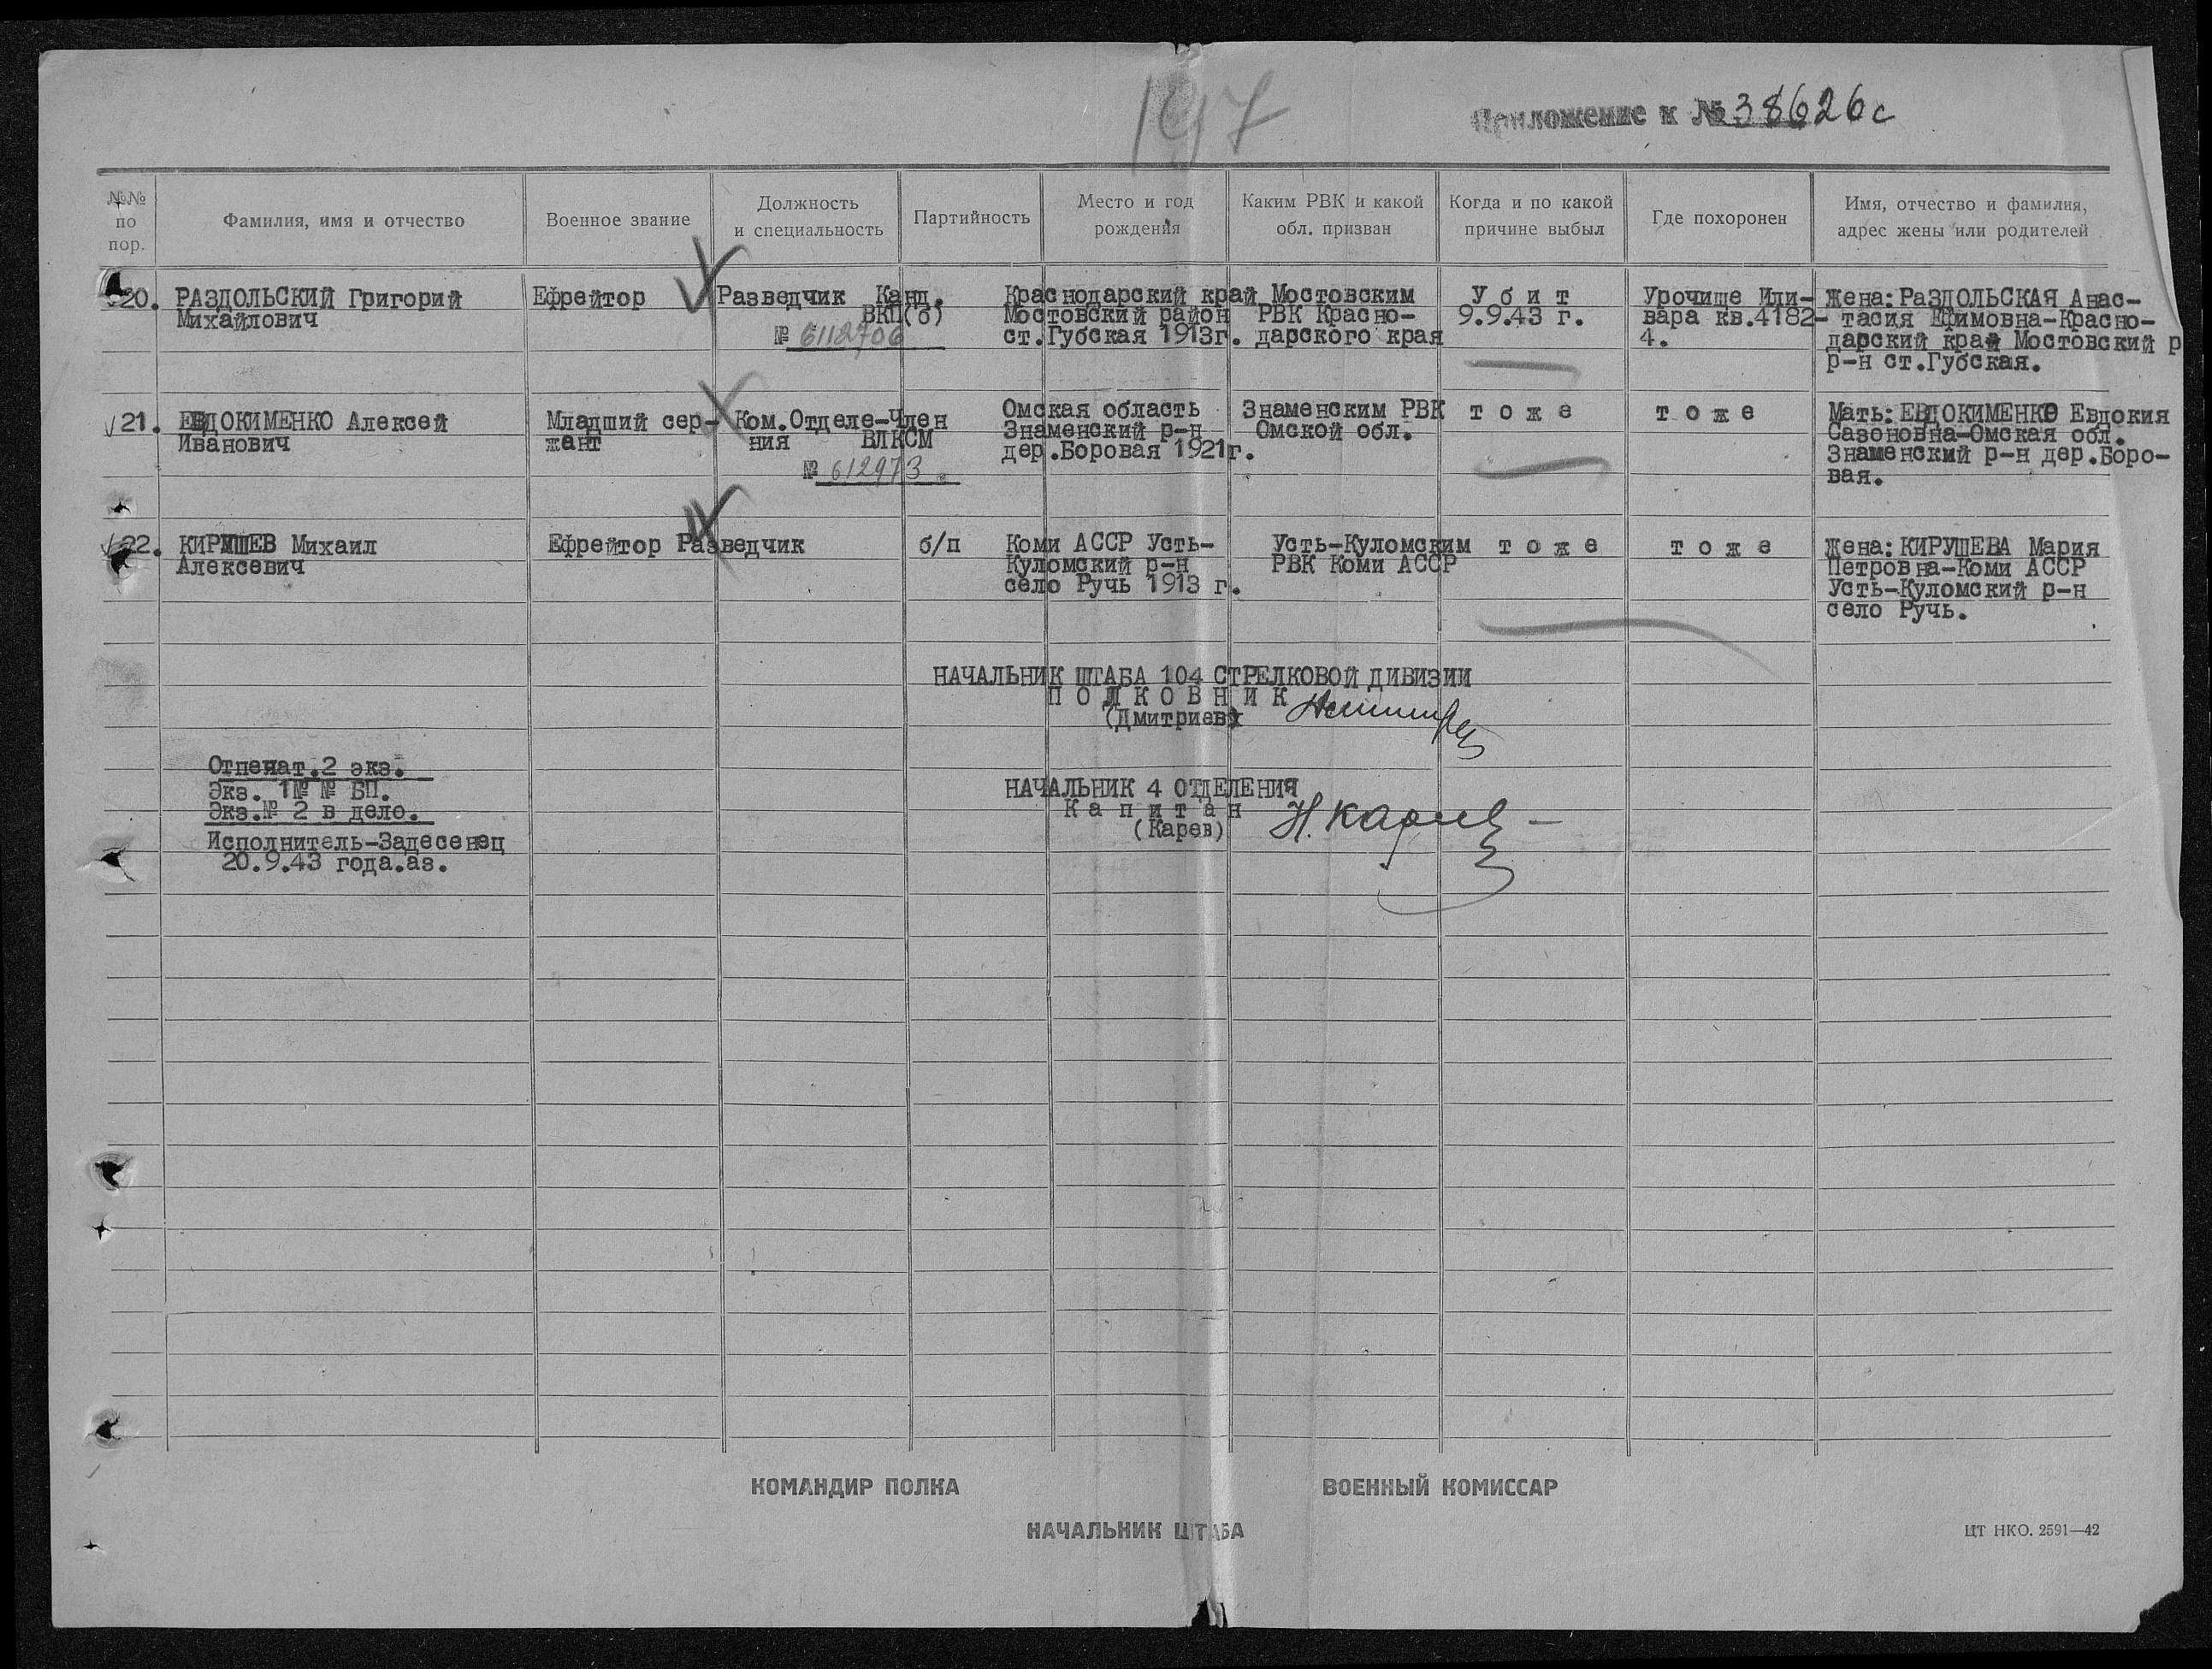 197
Приложение к № 38626с
№№ по пор.
Фамилия, имя и отчество
Военное звание
Должность и специальность
Партийность
Место и год рождения
Каким РВК и какой обл. призван
Когда и по какой причине выбыл
Где похоронен
Имя, отчество и фамилия, адрес жены или родителей
20. РАЗДОЛЬСКИЙ Григорий
Михайлович
Ефрейтор
Разведчик
Канд.
ВКП(б)
№ 6112706
Краснодарский край
Мостовский район
ст.Губская 1913г.
Мостовским
РВК Красно-
дарского края
У б и т
9.9.43 г.
Урочище Или-
вара кв.4182-
4.
Жена: РаЗДОЛЬСКАЯ Анас-
тасия Ефимовна-Красно-
дарский край Мостовский р
р-н ст.Губская.
21. ЕВДОКИМЕНКО Алексей
Иванович
Младший сер-
жант
Ком.Отделе-
ния
Член
ВЛКСМ
№ 612973.
Омская область
Знаменский р-н
дер.Боровая 1921г.
Знаменским РВК
Омской обл.
т о ж е
т о ж е
Мать: ЕВДОКИМЕНКО Евдокия
Сазоновна-Омская обл.
Знаменский р-н дер.Боро-
вая.
22. КИРУШЕВ Михаил
Алексевич
Ефрейтор
Разведчик
б/п
Коми АССР Усть-
Куломский р-н
село Ручь 1913 г.
Усть-Куломским
РВК Коми АССР
т о ж е
т о ж е
Жена: КИРУШЕВА Мария
Петровна-Коми АССР
Усть-Куломский р-н
село Ручь.
НАЧАЛЬНИК ШТАБА 104 СТРЕЛКОВОЙ ДИВИЗИИ
П О Л К О В Н И К
(Дмитриев)
Отпечат.2 экз.
Экз. 1№ № БП.
Экз.№ 2 в дело.
Исполнитель-Задесенец
20.9.43 года.аз.
НАЧАЛЬНИК 4 ОТДЕЛЕНИЯ
К а п и т а н
(Карев)
Н. Карев
КОМАНДИР ПОЛКА
ВОЕННЫЙ КОМИССАР
НАЧАЛЬНИК ШТАБА
ЦТ НКО. 2591—42